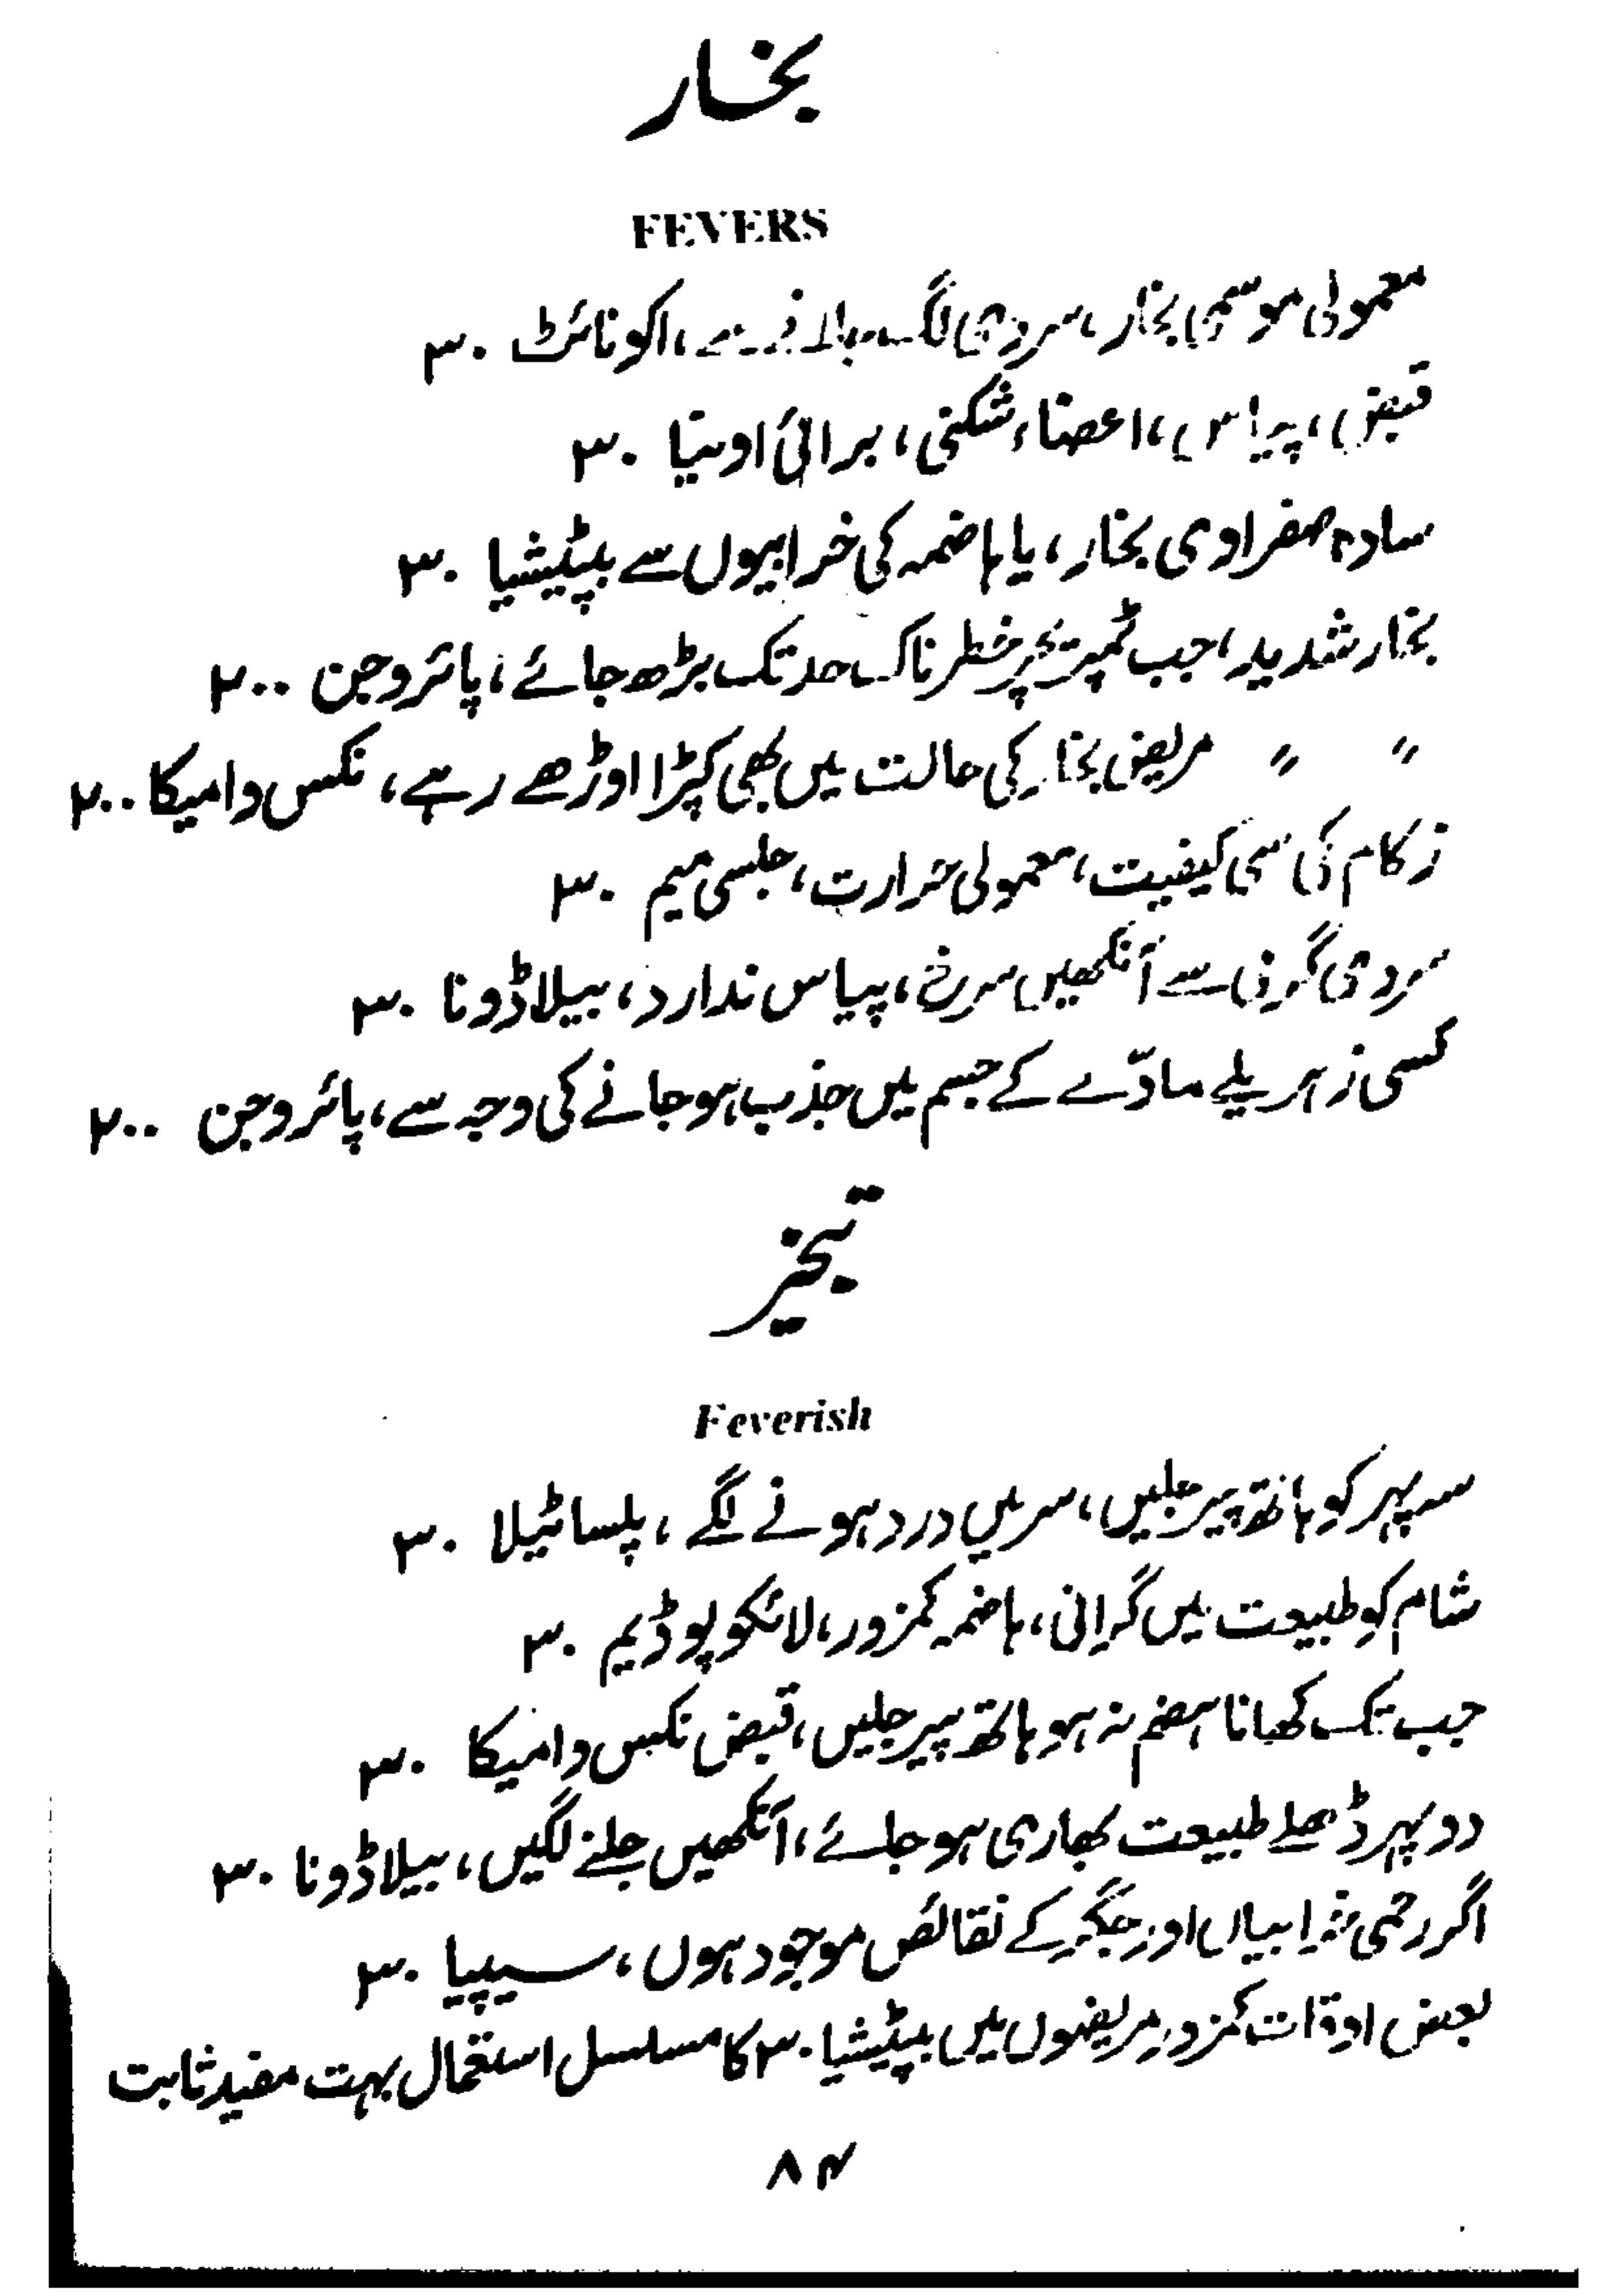 بخار
FEVERS
معمولی موسمی بخار، سردی لگ جانے سے، اکونائٹ ۳۰
قبض، پیاس، اعضاء شکنی، برائی اونیا ۳۰
سادہ صفراوی بخار، یا ہاضمہ کی خرابیوں سے بپٹیشیا ۳۰
بخار شدید، جب ٹمپریچر خطرناک حد تک بڑھ جائے، پائروجن ۲۰۰
〃 〃 مریض بخار کی حالت میں بھی کپڑا اوڑھے رہے، نکس وامیکا ۲۰۰
زکام کی سی کیفیت، معمولی حرارت، جلسی میم ۳۰
سردی گرمی سے آنکھیں سرخ، پیاس ندارد، بیلاڈونا ۳۰
کسی زہریلے مادّے کے جسم میں جذب ہو جانے کی وجہ سے، پائروجن ۲۰۰
تبخیر
Feverish
سہ پہر کو ہاتھ پیر جلیں، سر میں درد ہونے لگے، پلساٹیلا ۳۰
شام کو طبیعت میں گرانی، ہاضمہ کمزور، لائکوپوڈیم ۳۰
جب تک کھانا ہضم نہ ہو ہاتھ پیر جلیں، قبض نکس وامیکا ۳۰
دوپہر ڈھلے طبیعت بھاری ہو جائے، آنکھیں جلنے لگیں، بیلاڈونا ۳۰
اگر رحمی خرابیاں اور جگر کے نقائص موجود ہوں، سیپیا ۳۰
بعض اوقات کمزور مریضوں میں بپٹیشیا ۳۰ کا مسلسل استعمال بہت مفید ثابت
۸۴